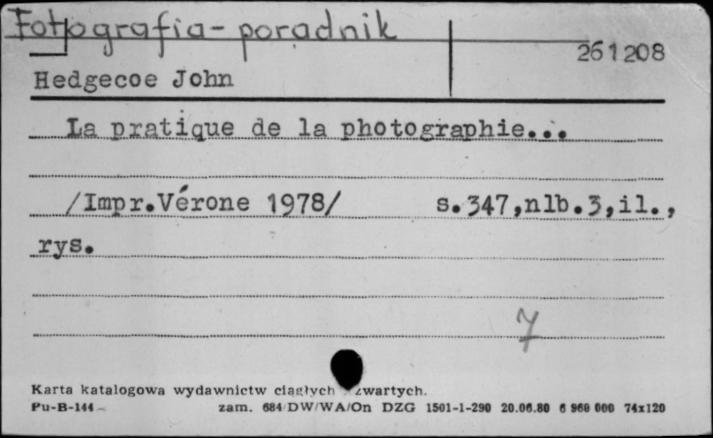 Fotografia - poradnik
261208
Hedgecoe John
La pratique de la photographie...
/Impr.Vérone 1978/ s.347,nlb.3,il.,
rys.
7
Karta katalogowa wydawnictw ciągłych zwartych.
Pu-B-144 zam. 684/DW/WA/On DZG 1501-1-290 20.06.80 6 960 000 74x120